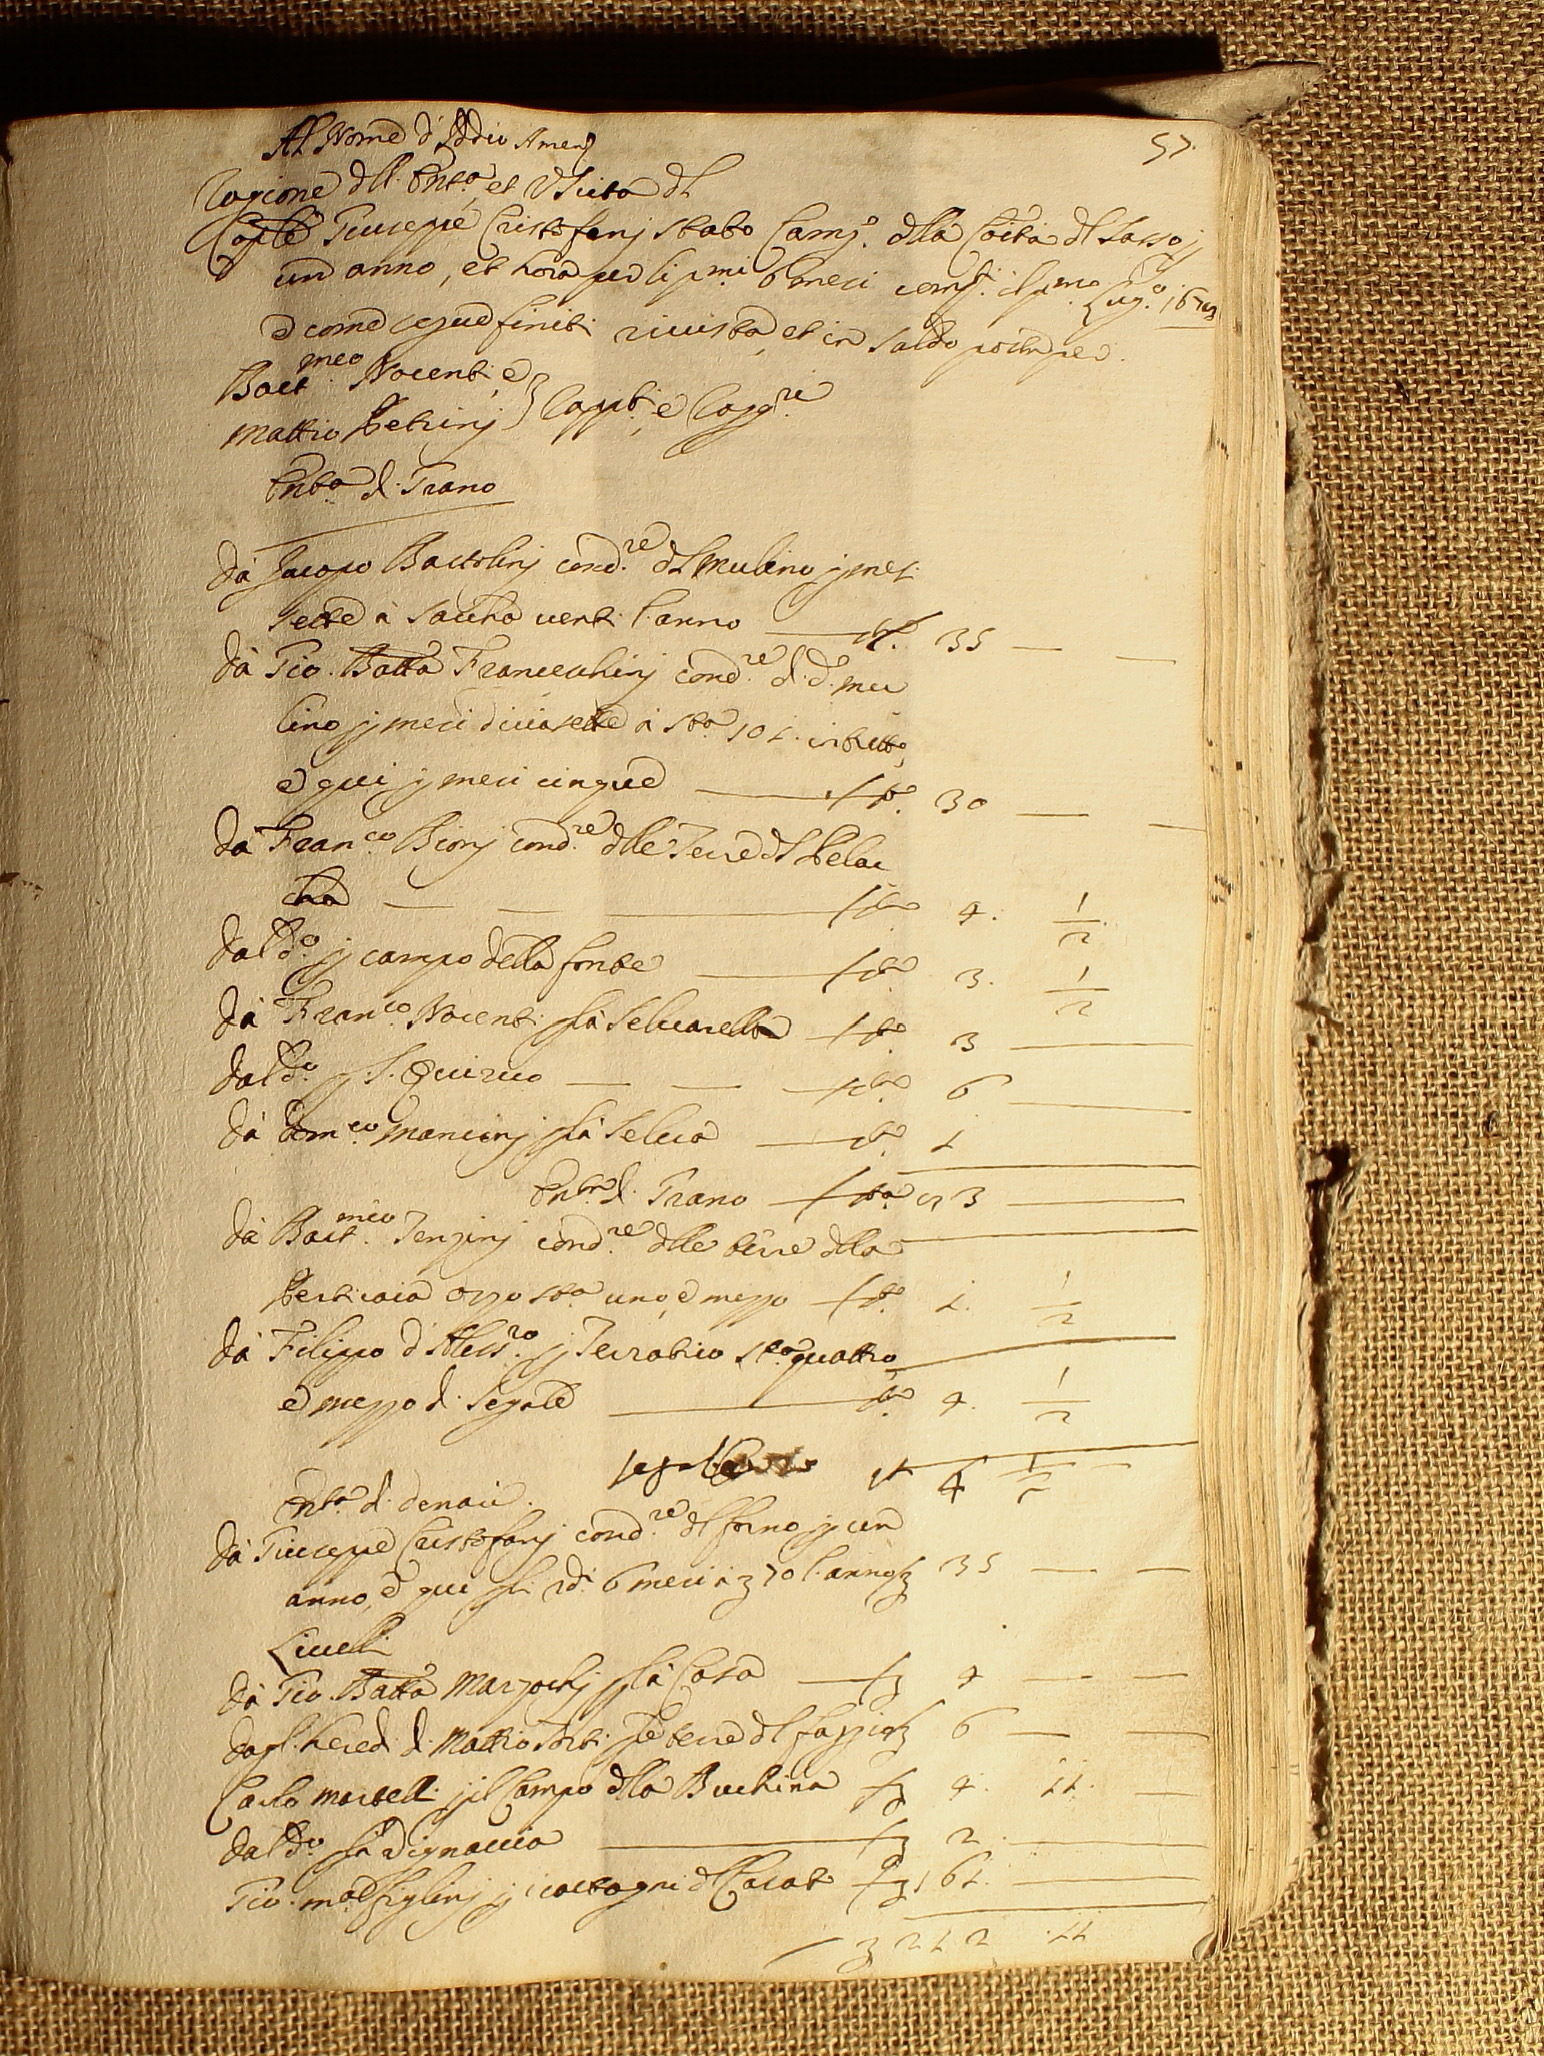 57.
Al Nome d'Iddio Amen
Ragione dll. Entr.a et Uscita dl
Giuseppe Cristofanj stato Cam.o dlla Co.ita dl Sasso p
un anno, et hora per li p.mi 6 mesi com.ti il p.mo Lug.o
e come segue finiti rivista, et in saldo posta per
Bart.meo Nocenti, e
Mattio Petrinj } Capp.ti e Ragg.ri
Entr.a di Grano
Da Jacopo Bartolinj cond.re dl Mulino p mesi
sette à sacca venti l'anno st.a 35 — —
Da Gio. Batta Franceschinj cond.re d. d.o mu
lino p mesi diciasette à st.a 101. in tutto,
e qui p mesi cinque st.a 30 — —
Da Fran.co Bionj cond.re dlle Terre dl Pela
st.a 4. 1/2
Dal d.o p campo della fonte st.a 3. 1/2
Da Fran.co Nocenti p la Selvarella st.a 3 —
Dal d.o p S. Quirico st.a 6 —
Da Dom.co Mancinj p la Selva st.a 1
Entr.a d. Grano st.a 83 —
Da Bart.meo cond.re dlle terre dlla
Perticaia orzo st.a uno, e mezzo st.a 1. 1/2
Da Filippo d'Aless.ro p Terratico st.a quattro
e mezzo d. segale st.a 4. 1/2
st 4 1/2
Entr.a d. denari.
Da Giuseppe Cristofanj cond.re dl forno p un
anno, e qui p li d.i 6 mesi à ʒ 70 l'anno ʒ 35 — —
Livelli
Da Gio. Batta Marzochj p la Casa ʒ 4 — —
Dagl. heredi d. Mattio p le terre dl ʒ 6 — —
Carlo Martell. p il Campo dlla Buchina ʒ 4. 11. —
Dal d.o p la Vignaccia ʒ 2. —
Gio. m.a p i castagni dl ʒ 161. —
ʒ 212 .11